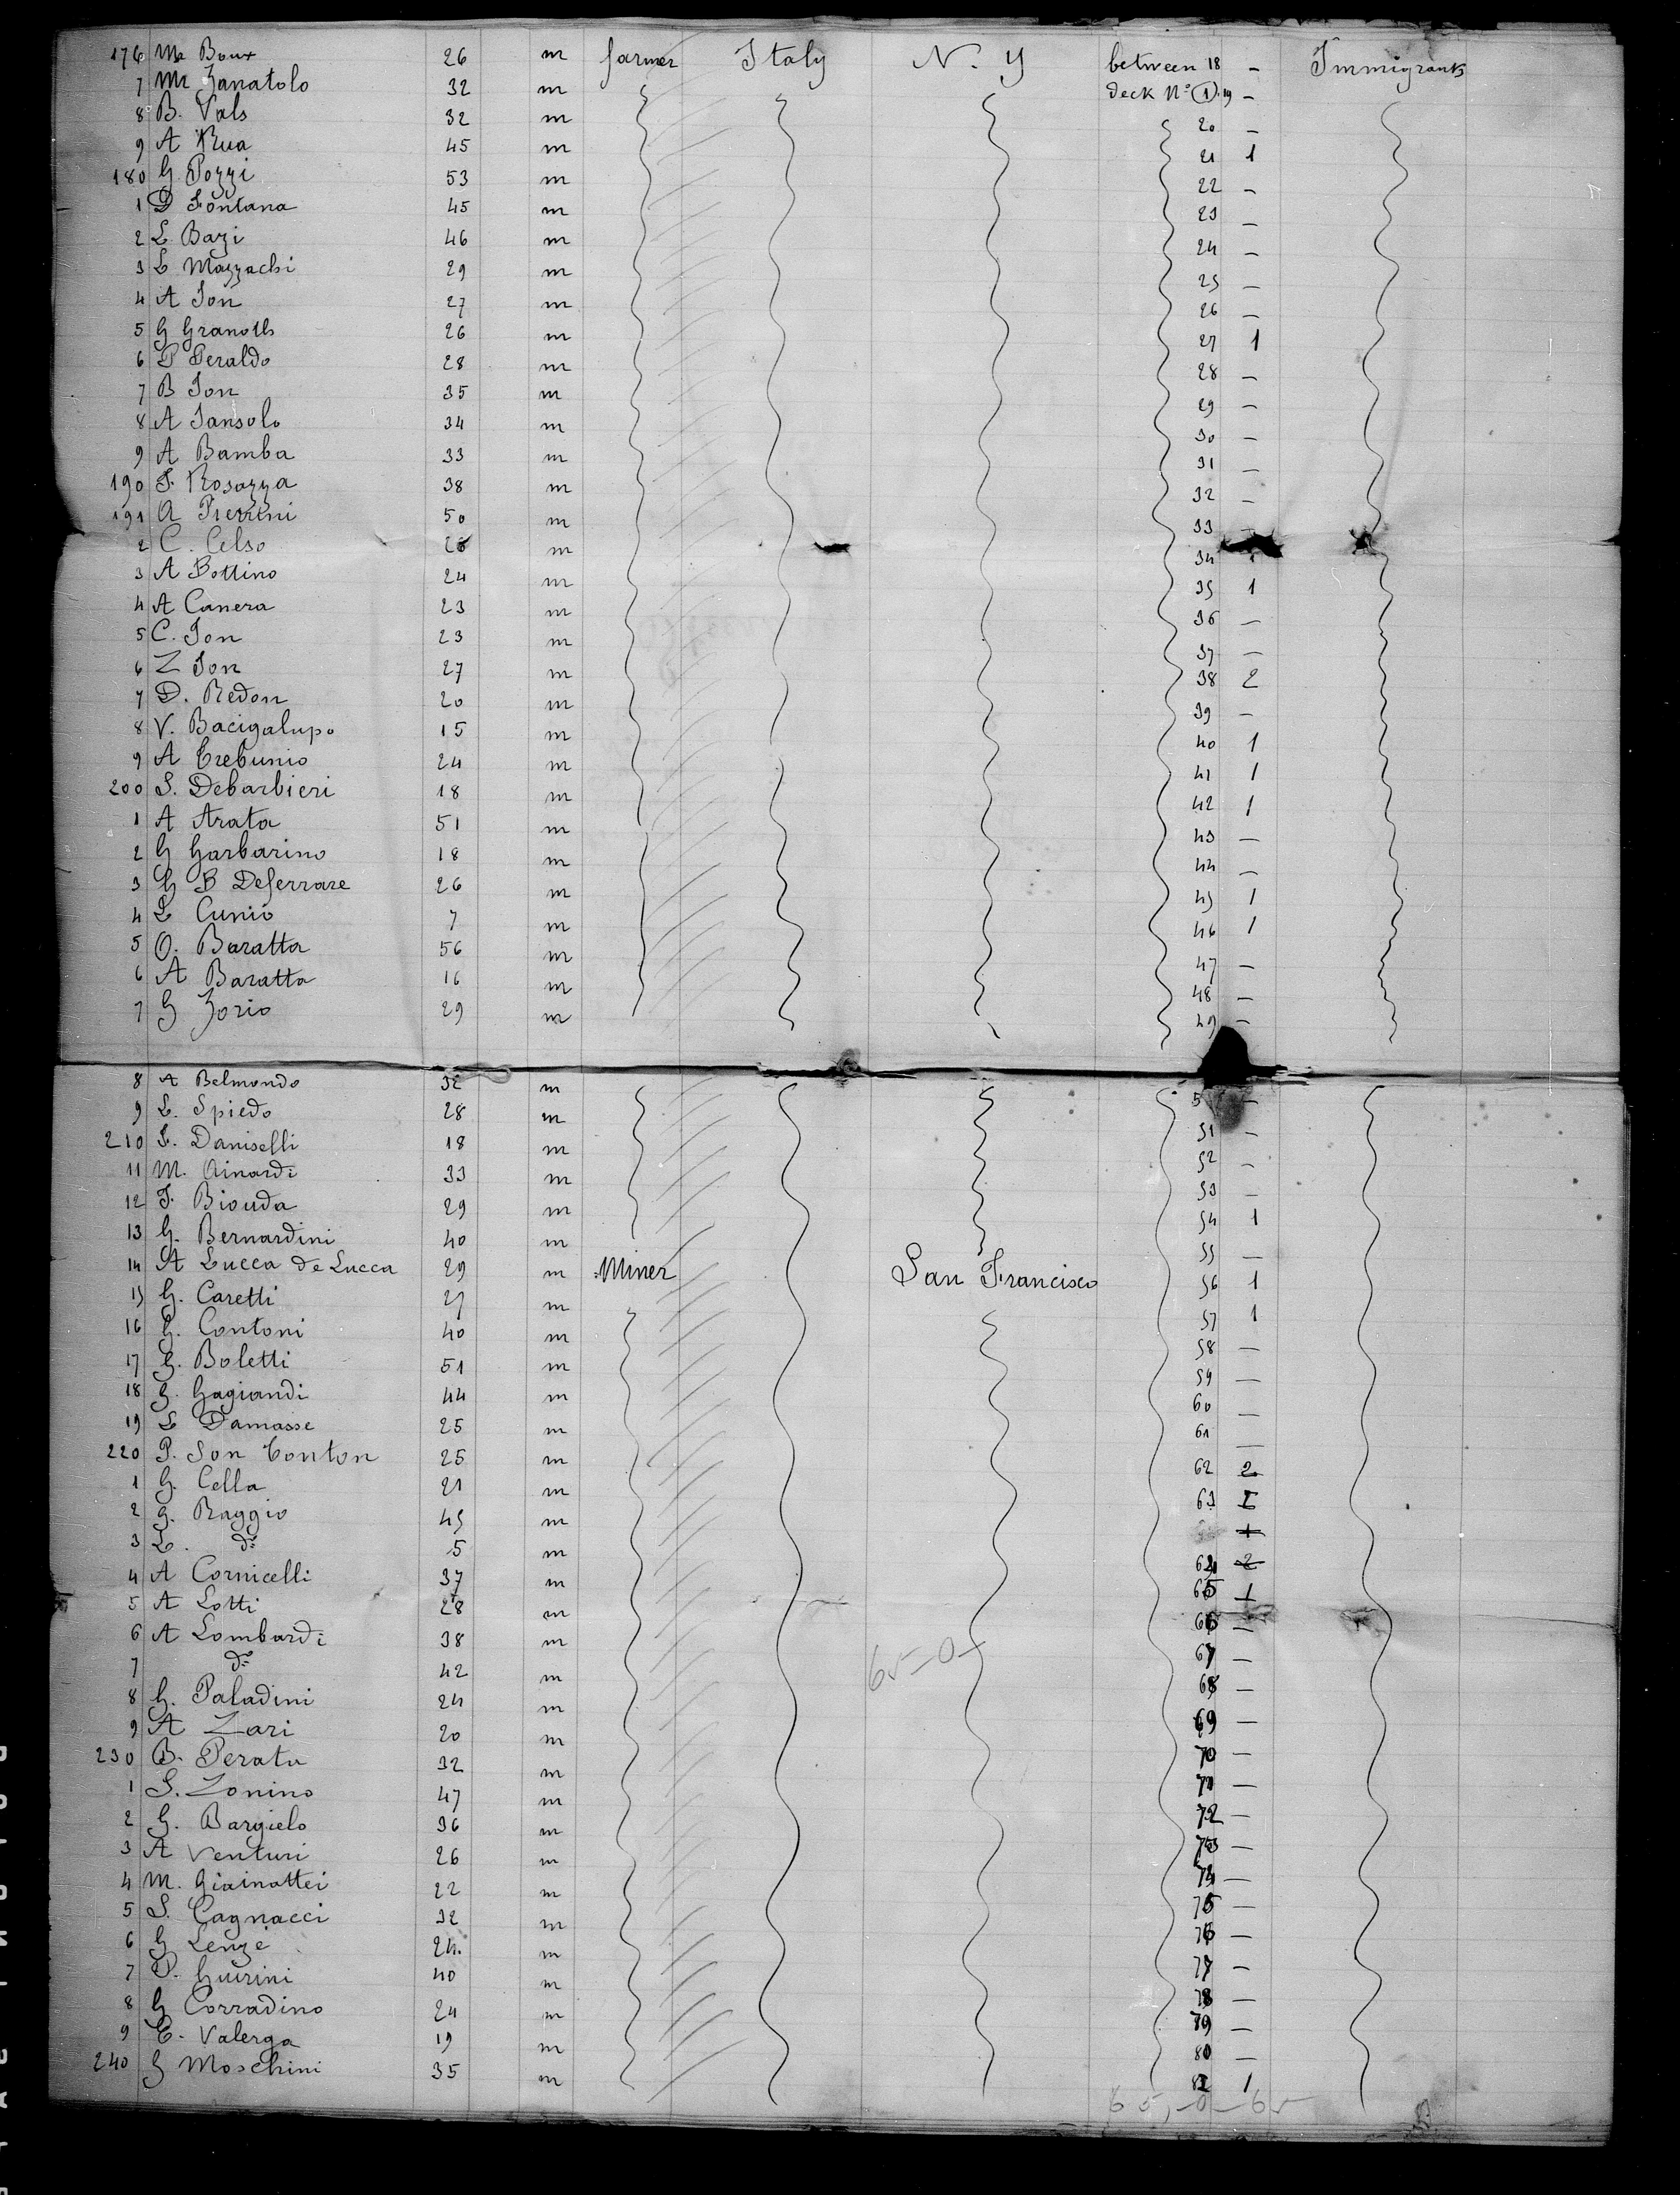 176 M Boux 26 m farmer Italy N. Y between 18 — Immigrants
7 M Zanatolo 32 m deck No (1) 19 —
8 B. Vals 32 m 20 —
9 A Rua 45 m 21 1
180 G Pozzi 53 m 22 —
1 D Fontana 45 m 23 —
2 L Bazi 46 m 24 —
3 L Mazzachi 29 m 25 —
4 A Ton 27 m 26 —
5 G 26 m 27 1
6 P Peraldo 28 m 28 —
7 B Ton 35 m 29 —
8 A Jansolo 34 m 30 —
9 A Bamba 33 m 31 —
190 F. Rosazza 38 m 32 —
191 A 50 m 33 —
2 C. Celso m 34
3 A Bottino 24 m 35 1
4 A Canera 23 m 36 —
5 C. Ton 23 m 37 —
6 Z Ton 27 m 38 2
7 D. Redon 20 m 39 —
8 V. Bacigalupo 15 m 40 1
9 A Trebunio 24 m 41 1
200 S. Debarbieri 18 m 42 1
1 A Arata 51 m 43 —
2 G Garbarino 18 m 44 —
3 G B Deferrare 26 m 45 1
4 L Cunio 7 m 46 1
5 O. Baratta 56 m 47 —
6 A Baratta 16 m 48 —
7 G Zorio 29 m 49 —
8 A Belmondo 32 m 5 —
9 L. Spiedo 28 m 51 —
210 F. Daniselli 18 m 52 —
11 M. Ainardi 33 m 53 —
12 F. Biouda 29 m 54 1
13 G. Bernardini 40 m 55 —
14 A Lucca de Lucca 29 m Miner San Francisco 56 1
15 G. Caretti 27 m 57 1
16 G. Contoni 40 m 58 —
17 G. Boletti 51 m 59 —
18 G. Gagiandi 44 m 60 —
19 L Damasse 25 m 61 —
220 P. Son Tonton 25 m 62 2
1 G. Cella 21 m 63 1
2 G. Raggio 45 m 1
3 L. do 5 m 64 2
4 A Cornicelli 37 m 65 1
5 A Lotti 28 m 66 —
6 A Lombardi 38 m 67 —
7 do 42 m 68 —
8 G. Paladini 24 m 69 —
9 A Zari 20 m 70 —
230 B. Perata 32 m 71 —
1 S. Zonino 47 m 72 —
2 G. Bargielo 36 m 73 —
3 A Venturi 26 m 74 —
4 M. Giainattei 22 m 75 —
5 S. Cagnacci 32 m 76 —
6 G Lenze 24 m 77 —
7 P. Guirini 40 m 78 —
8 G Corradino 24 m 79 —
9 E. Valerga 19 m 80 —
240 G Moschini 35 m 1
65-0-
65,-0-65